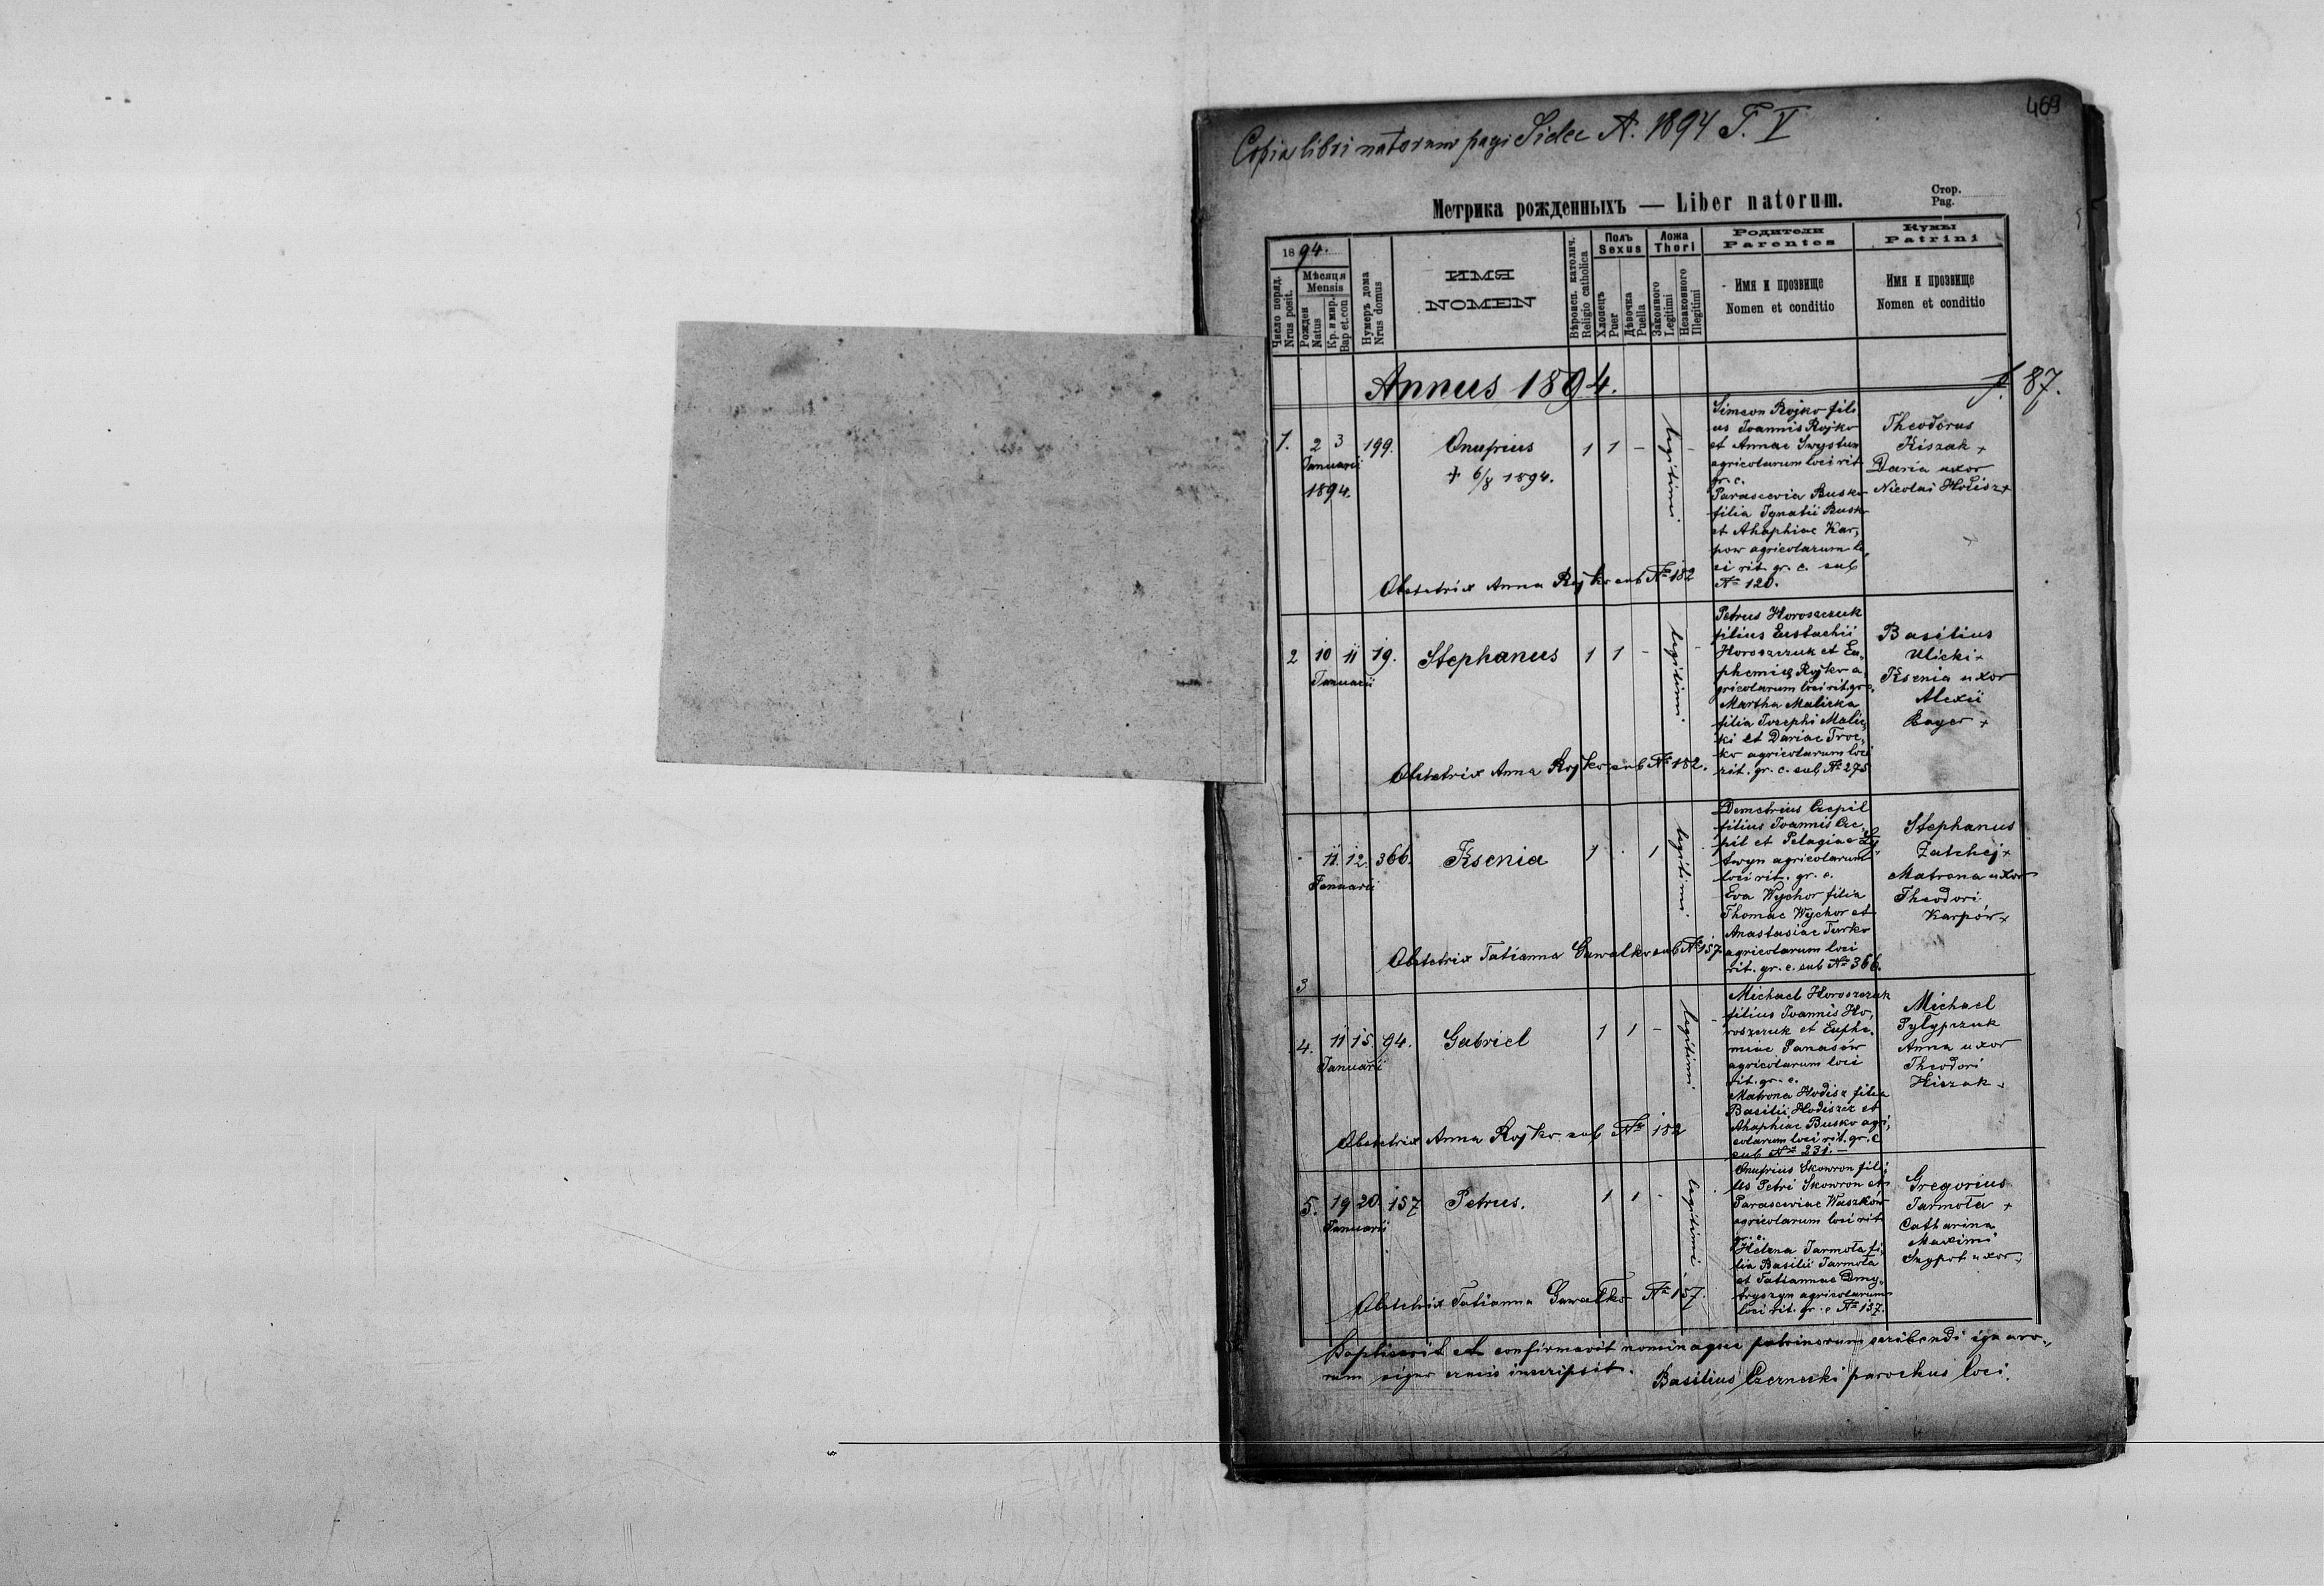 469
Copia libri natorum pagi Sielec A. 1894 T. V
Метрика рожденныхъ — Liber natorum.
Стор.
Pag.
1894.
Число поряд.
Nrus posit.
Мѣсяця
Mensis
Рожден
Natus
Кр. и мѵр.
Bap et.con
Нумеръ дома
Nrus domus
ИМЯ
NOMEN
Вѣроисп. католич.
Religio catholica
Полъ
Sexus
Хлопецъ
Puer
Дѣвочка
Puella
Ложа
Thori
Законного
Legitimi
Незаконного
Illegitimi
Родители
Parentes
Имя и прозвище
Nomen et conditio
Кумы
Patrini
Имя и прозвище
Nomen et conditio
Annus 1894.
f. 87.
1. 2 3 199. Onufrius 1 1 - legitimi -
Januarii
1894.
+ 6/8 1894.
Simeon Rojko fili
us Joannis Rojko
et Annae Swystun
agricolarum loci rit.
gr. c.
Parascevia Busko
filia Ignatii Busk
et Ahaphiae Kar,
pow agricolarum lo,
ci rit. gr. c. sub
No 120.
Theodorus
Kiszak +
Daria uxor
Nicolai Hodisz+
Obstetrix Anna Rojko sub No 182
2 10 11 19. Stephanus 1 1 - legitimi -
Januarii
Petrus Horoszczuk
filius Eustachii
Horoszczuk et Eu,
phemiae Rojko a,
gricolarum loci rit. gr. c.
Martha Malicka
filia Josephi Malic,
ki et Dariae Troc,
ko agricolarum loci
rit. gr. c. sub No 275
Basilius
Ulicki+
Ksenia uxor
Alexii
Bayer +
Obstetrix Anna Rojko sub No 182.
3 11. 12. 366. Ksenia 1 . 1 legitimi
Januarii
Demetrius Czepil
filius Joannis Cze,
pil et Pelagiae Ly,
twyn agricolarum
loci rit. gr. c.
Eva Wychor filia
Thomae Wychor et
Anastasiae Turko
agricolarum loci
rit. gr. c. sub No 366.
Stephanus
Zatchej+
Matrona uxor
Theodori
Karpów+
Obstetrix Tatianna Gawalko sub No 157.
4. 11 15. 94. Gabriel 1 1 - legitimi -
Januarii
Michael Horoszczuk
filius Joannis Ho,
roszczuk et Euphe,
miae Panasów
agricolarum loci
rit. gr. c.
Matrona Hodisz filia
Basilii Hodiszcz et
Ahaphiae Busko agri,
colarum loci rit. gr. c.
sub No 231. -
Michael
Pylypczuk
Anna uxor
Theodori
Kiszak +
Obstetrix Anna Rojko sub No 182
5. 19 20. 157 Petrus. 1 1 - legitimi
Januarii
Onufrius Skowron fili,
us Petri Skowron et
Parasceviae Waszków
agricolarum loci rit.
gr. c.
Helena Jarmoła fi,
lia Basilii Jarmoła
et Tatiannae Dmy,
tryszyn agricolarum
loci rit. gr. c No 157.
Gregorius
Jarmoła +
Catharina
Maximi
Szypot uxor+
Obstetrix Tatianna Gawalko No 157.
Baptisavit et confirmavit nominaque patrinorum scribendi ignaro,,
rum signo crucis inscripsit.
Basilius Czernecki parochus loci.